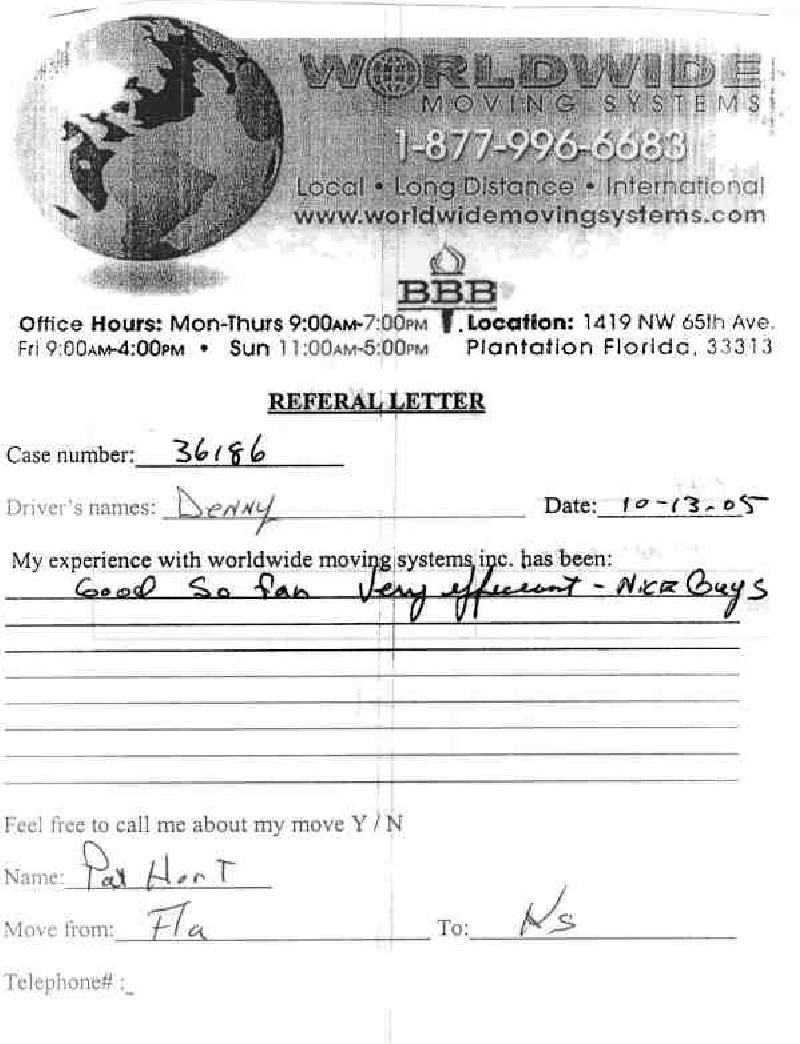 WORLDWIDE
MOVING SYSTEMS
1-877-996-6683
Local • Long Distance • International
www.worldwidemovingsystems.com
BBB
Office Hours: Mon-Thurs 9:00AM-7:00PM . Location: 1419 NW 65th Ave.
Fri 9:00AM-4:00PM • Sun 11:00AM-5:00PM Plantation Florida, 33313
REFERAL LETTER
Case number: 36186
Driver's names: Denny Date: 10-13-05
My experience with worldwide moving systems inc. has been:
Good So far Very efficient - Nice Guys
Feel free to call me about my move Y / N
Name: Pat
Move from: Fla To:
Telephone# :